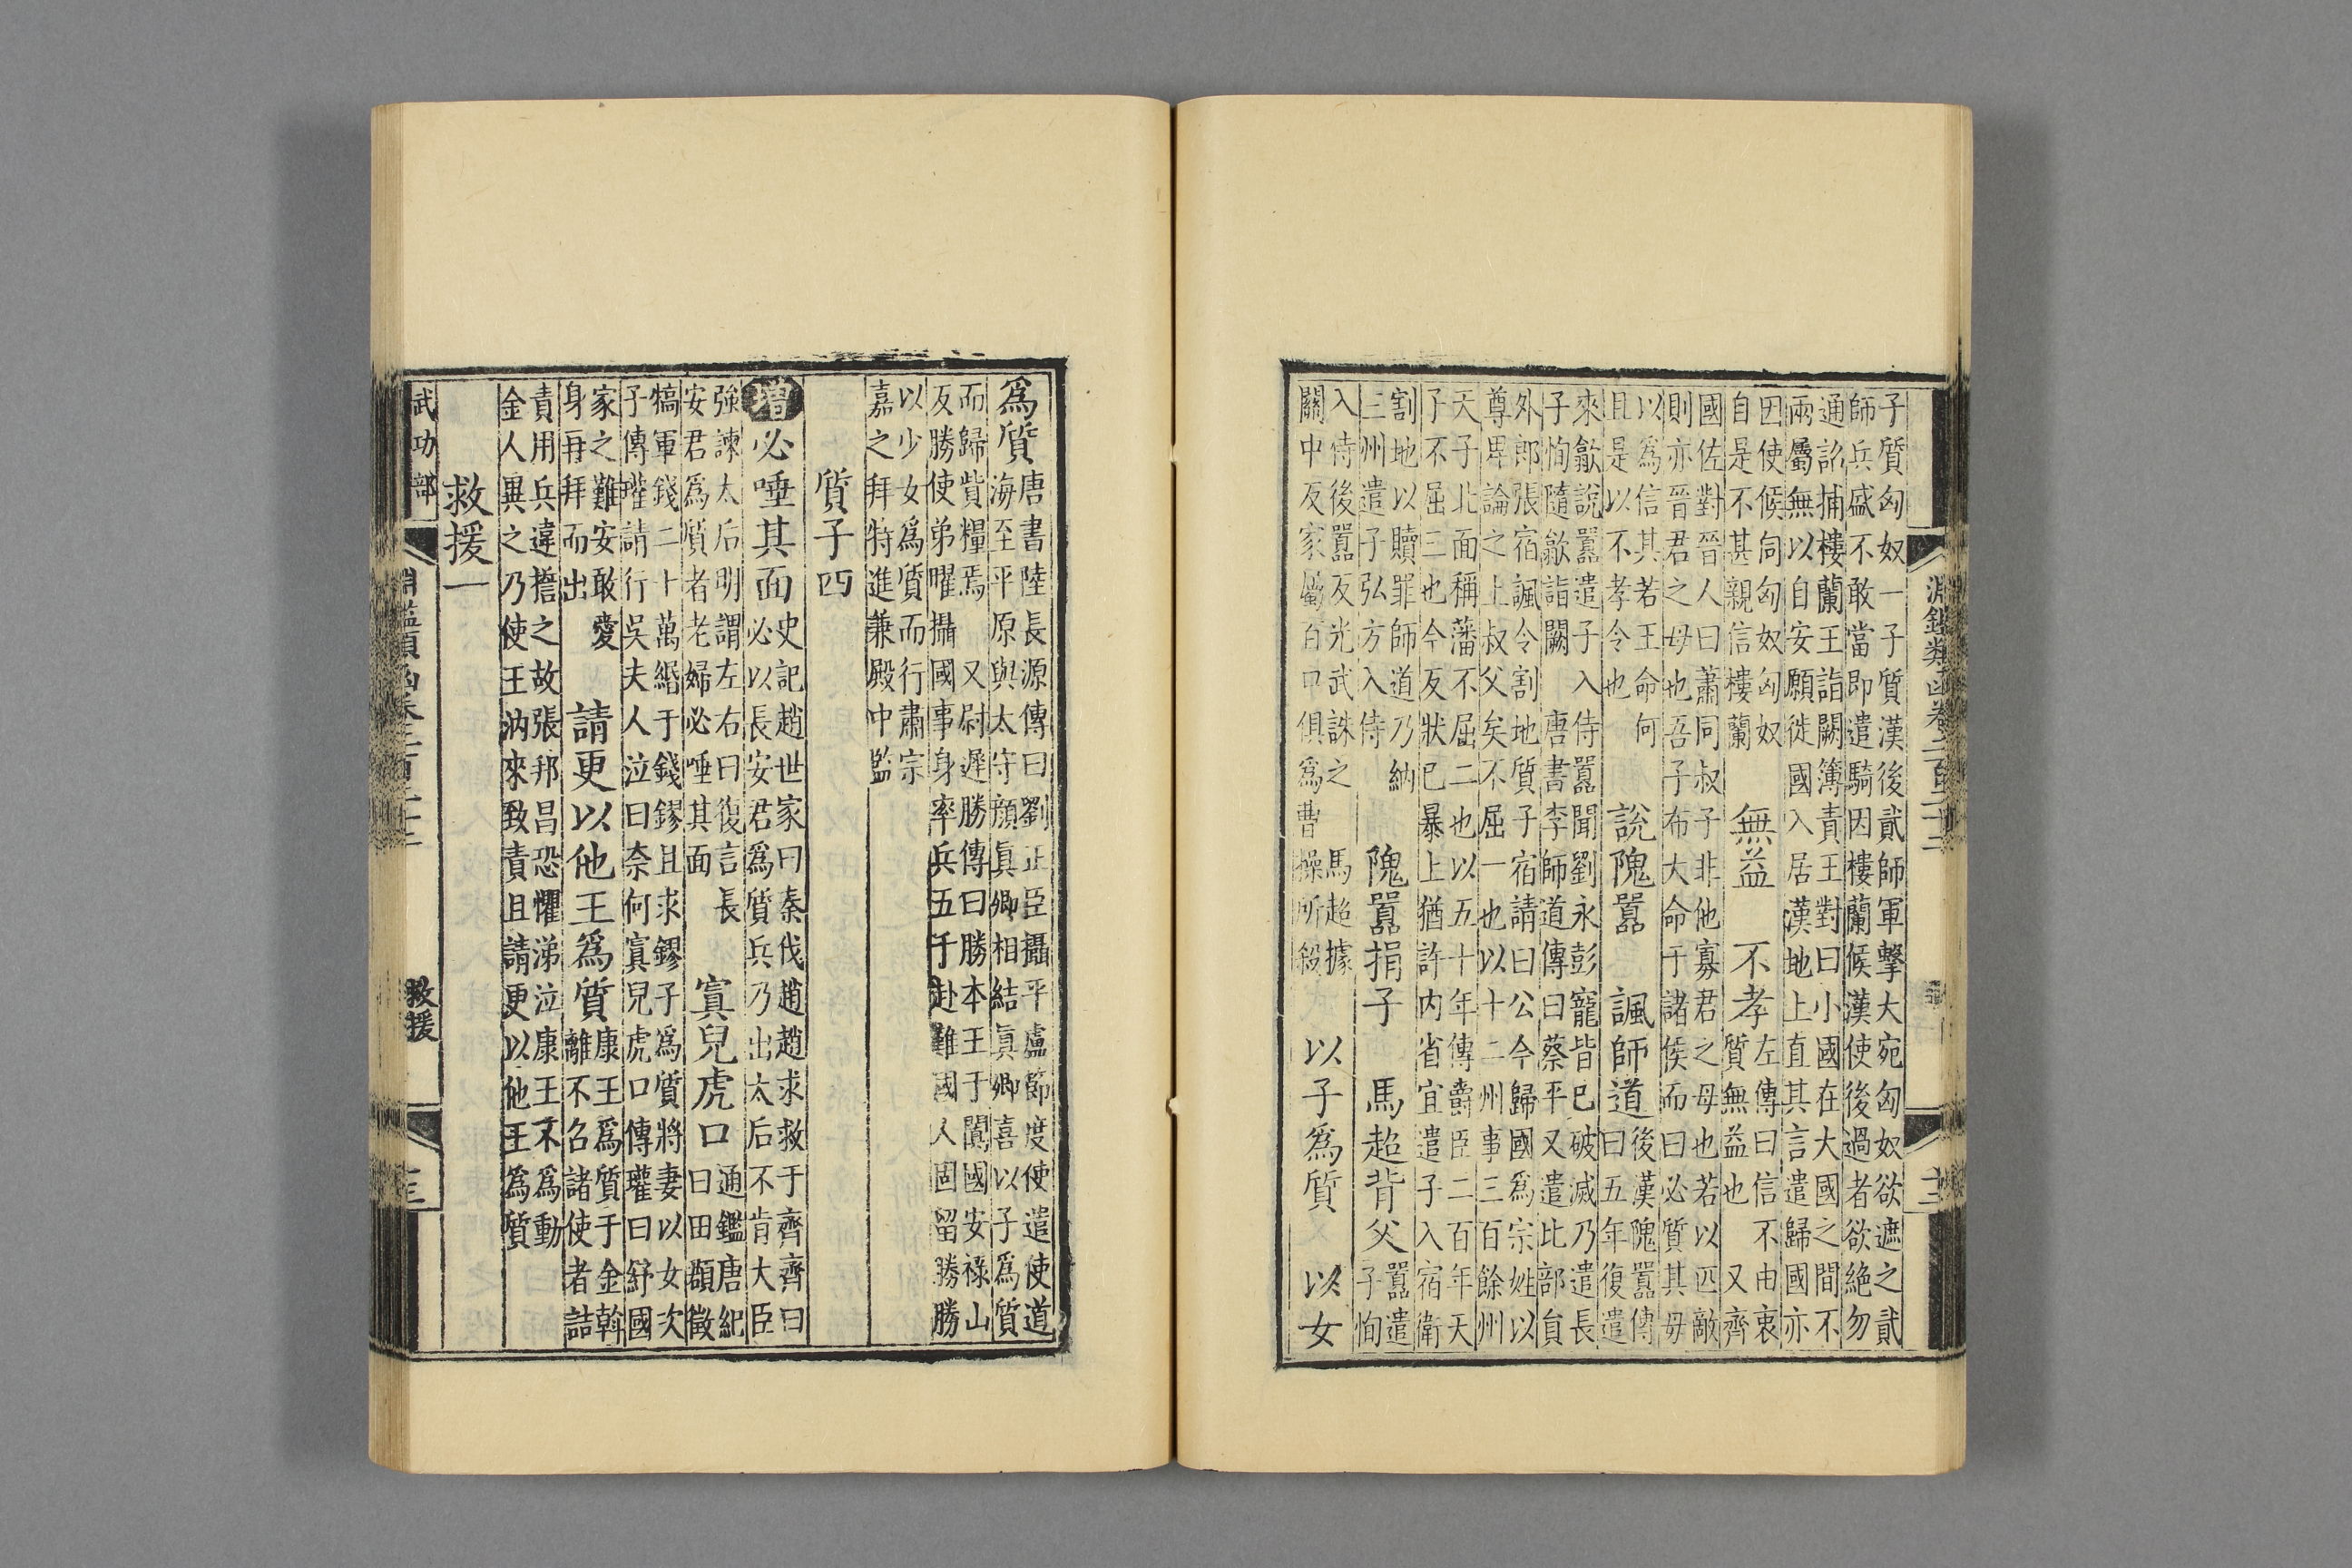 淵鑑類函卷二百二十二 十二
子質匈奴一子質漢後貳師軍擊大宛匈奴欲遮之貳
師兵盛不敢當即遣騎因樓蘭候漢使後過者欲絕勿
通詔捕樓蘭王詣闕簿責王對曰小國在大國之間不
兩屬無以自安願徙國入居漢地上直其言遣歸國亦
因使候伺匈奴匈奴
自是不甚親信樓蘭
無益 不孝
左傳曰信不由衷
質無益也 又齊
國佐對晉人曰蕭同叔子非他寡君之母也若以匹敵
則亦晉君之母也吾子布大命于諸侯而曰必質其母
以為信其若王命何
且是以不孝令也
說隗囂 諷師道
後漢隗囂傳
曰五年復遣
來歙說囂遣子入侍囂聞劉永彭寵皆已破滅乃遣長
子恂隨歙詣闕 唐書李師道傳曰蔡平又遣比部員
外郎張宿諷令割地質子宿請曰公今歸國爲宗姓以
尊卑論之上叔父矣不屈一也以十二州事三百餘州
天子北面稱藩不屈二也以五十年傳爵臣二百年天
子不屈三也今反狀已暴上猶許內省宜遣子入宿衛
割地以贖罪師道乃納
三州遣子弘方入侍
隗囂捐子 馬超背父
囂遣
子恂
入侍後囂反光武誅之 馬超據
關中反家屬百口俱爲曹操所殺
以子爲質 以女
爲質
唐書陸長源傳曰劉正臣攝平盧節度使遣使道
海至平原與太守顏眞卿相結眞卿喜以子爲質
而歸貲糧焉 又尉遲勝傳曰勝本王于闐國安祿山
反勝使弟曜攝國事身率兵五千赴難國人固留勝勝
以少女爲質而行肅宗
嘉之拜特進兼殿中監
質子四
增必唾其面
史記趙世家曰秦伐趙趙求救于齊齊曰
必以長安君爲質兵乃出太后不肯大臣
強諫太后明謂左右曰復言長
安君爲質者老婦必唾其面
寘兒虎口
通鑑唐紀
曰田頵徵
犒軍錢二十萬緡于錢鏐且求鏐子爲質將妻以女次
子傳瓘請行吳夫人泣曰奈何寘兒虎口傳瓘曰紓國
家之難安敢愛
身再拜而出
請更以他王爲質
康王爲質于金斡
離不召諸使者詰
責用兵違誓之故張邦昌恐懼涕泣康王不爲動
金人異之乃使王汭來致責且請更以他王爲質
救援一
武功部 淵鑑類函卷二百二十二 救援 十三